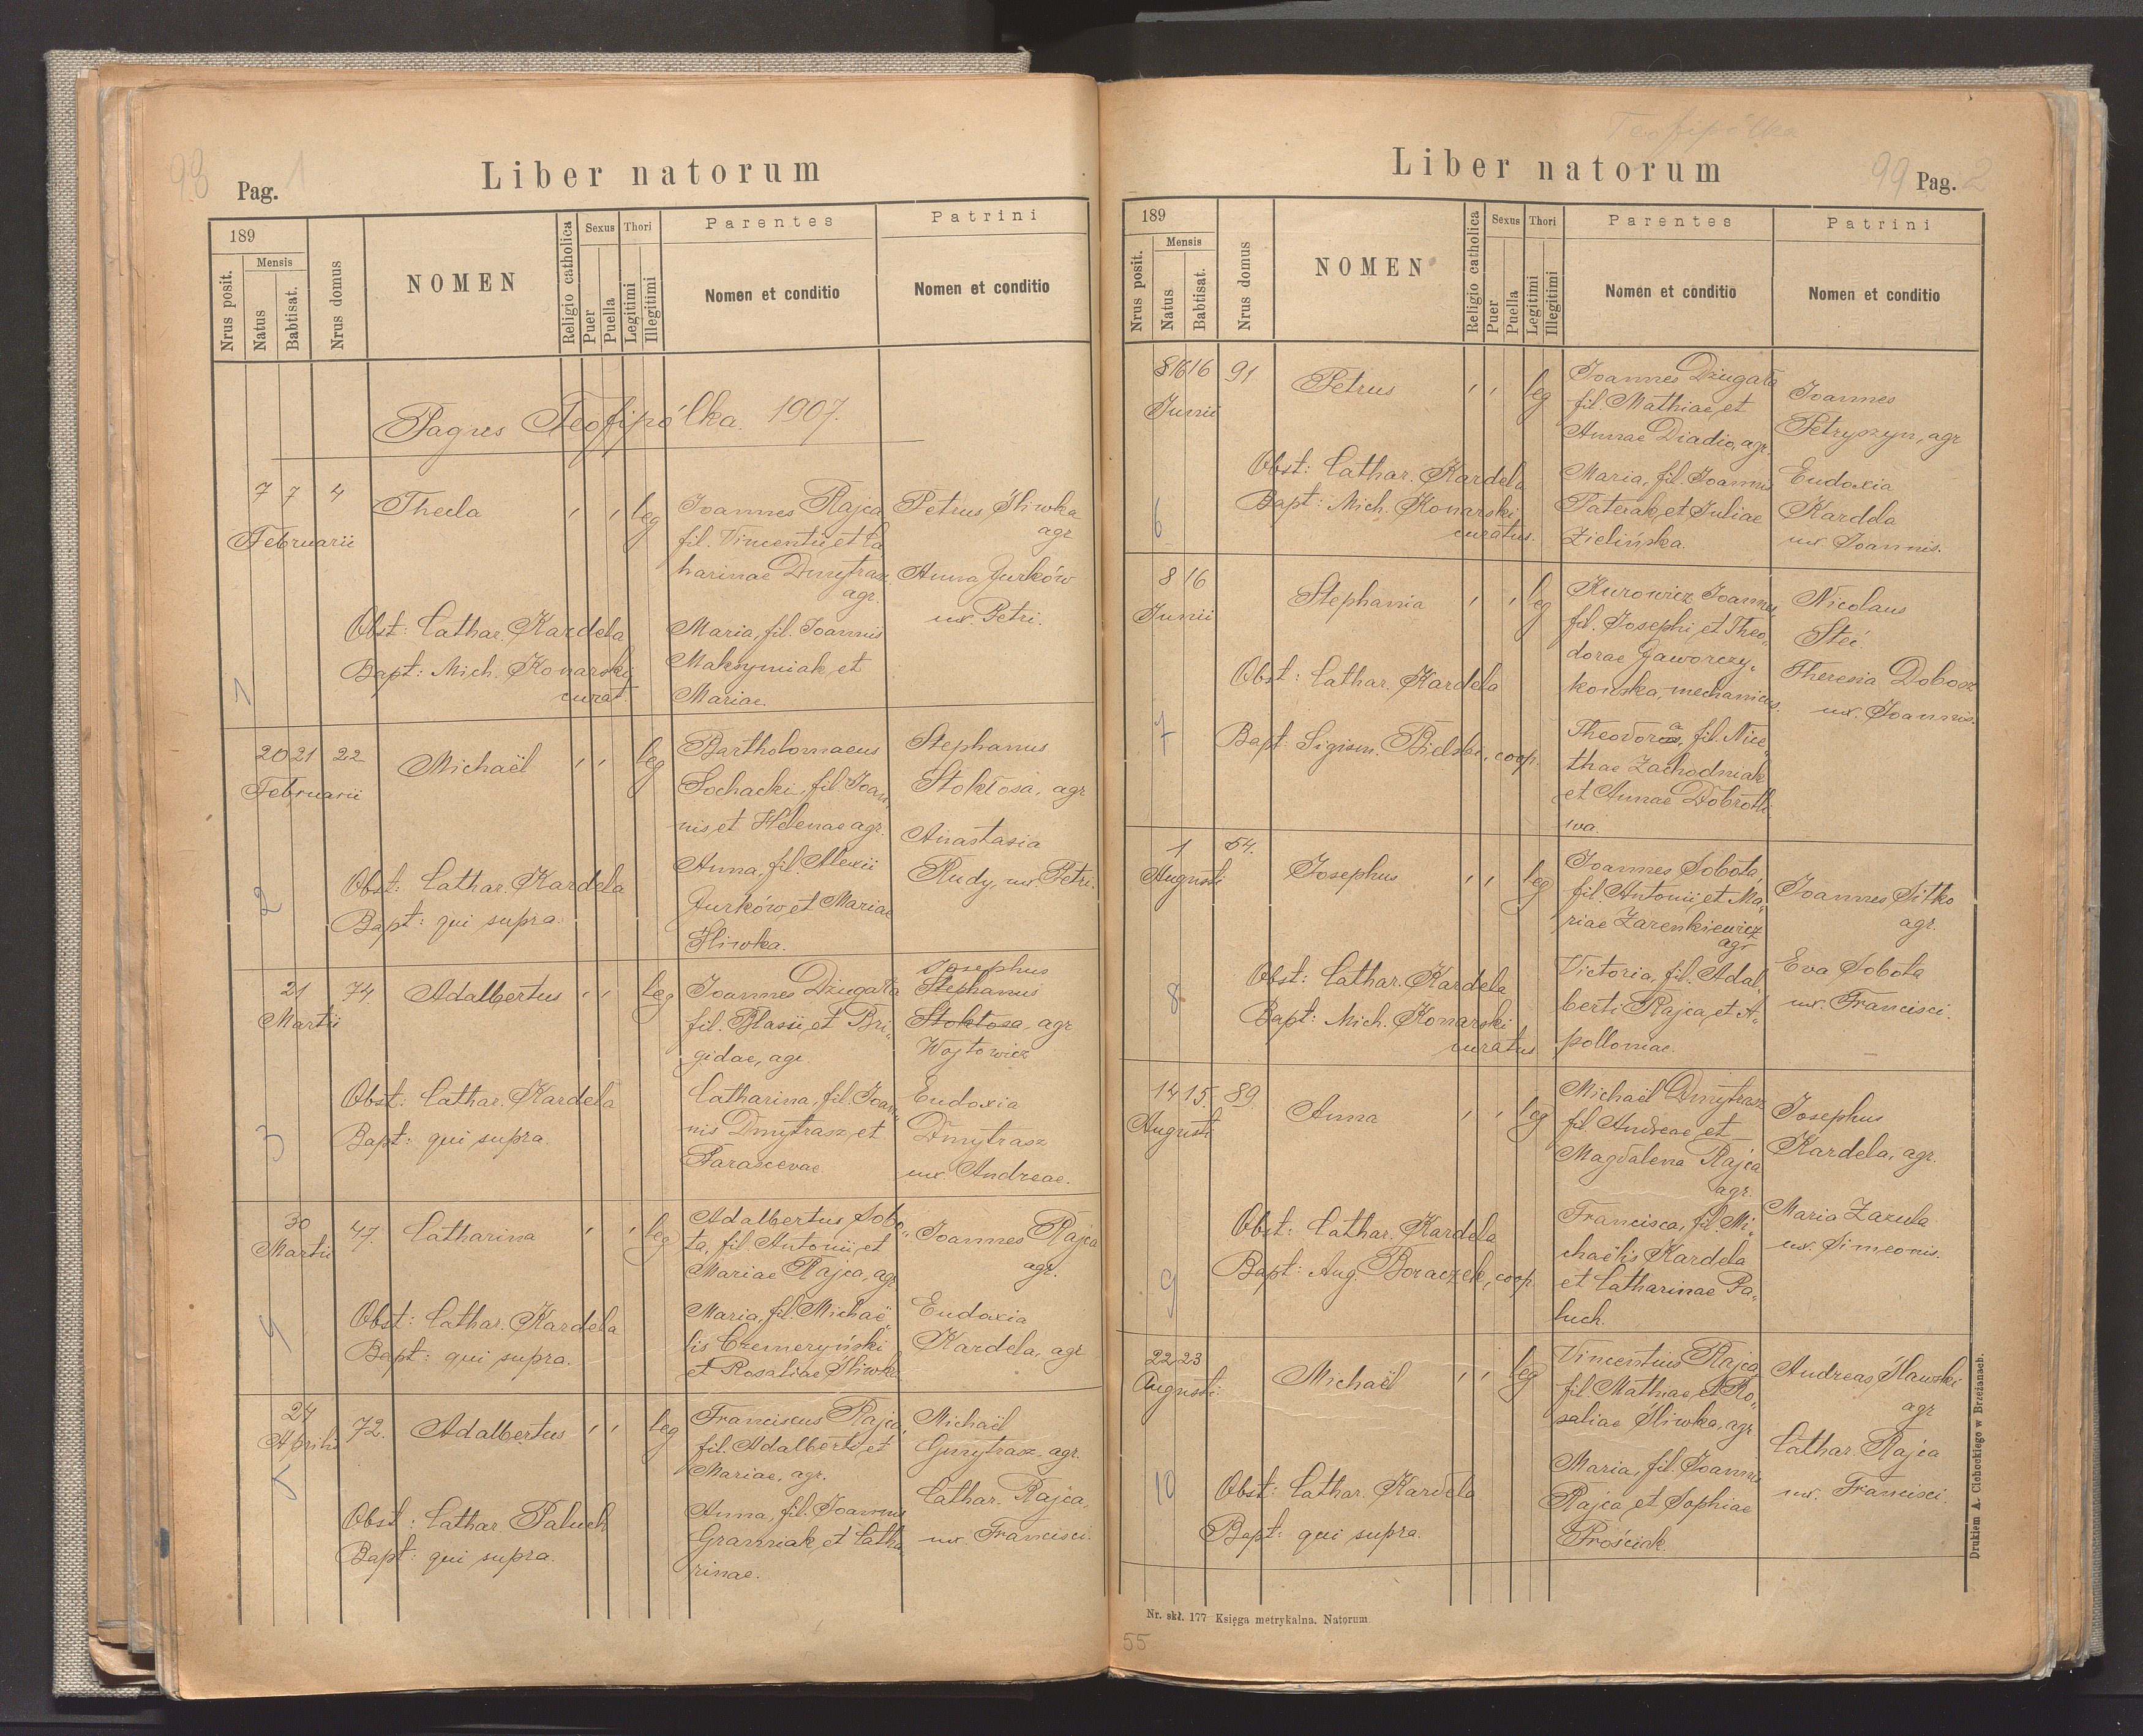 98
Pag. 1
Liber natorum
189
Mensis
Nrus posit.
Natus
Babtisat.
Nrus domus
NOMEN
Religio catholica
Sexus
Puer
Puella
Thori
Legitimi
Illegitimi
Parentes
Nomen et conditio
Patrini
Nomen et conditio
Pagus Teofipólka. 1907.
7 7 4
Februarii
Thecla
leg
Joannes Rajca
fil. Vincentii et Ca
harinae Dmytrasz
agr.
Maria, fil. Joannis
Maksymiak et
Mariae.
Petrus Śliwka
agr
Anna Jurków
ux. Petri.
Obst: Cathar. Kardela
Bapt: Mich. Konarski
curat.
1
20 21 22
Februarii
Michaël
leg
Bartholomaeus
Sochacki, fil. Joan
nis et Helenae agr.
Anna, fil. Alexii
Jurków, et Mariae
Śliwka.
Stephanus
Stokłosa, agr
Anastasia
Rudy, ux Petri.
Obst: Cathar. Kardela
Bapt: qui supra.
2
21 74.
Martii
Adalbertus
leg
Joannes Dziugała
fil. Blasii, et Bri„
gidae, agr.
Catharina, fil. Joan„
nis Dmytrasz, et
Parascevae.
Josephus
Stephanus
Stokłosa, agr
Wojtowicz
Eudoxia
Dmytrasz
ux. Andreae.
Obst: Cathar. Kardela
Bapt: qui supra.
3
30 47.
Martii
Catharina
leg
Adalbertus Sobo„
ta, fil. Antonii, et
Mariae Rajca, agr
Maria, fil. Michaë„
lis Czemeryński
et Rosaliae Śliwka
Joannes Rajca
agr.
Eudoxia
Kardela, agr
Obst: Cathar. Kardela
Bapt: qui supra.
4
24 72.
Aprilis
Adalbertus
leg
Franciscus Rajca,
fil. Adalberti, et
Mariae, agr.
Anna, fil. Joannis
Granniak, et Catha„
rinae.
Michaël
Gmytrasz, agr.
Cathar. Rajca,
ux. Francisci.
Obst: Cathar. Paluch
Bapt: qui supra.
5
Teofipólka
Liber natorum
99 Pag. 2
189
Mensis
Nrus posit.
Natus
Babtisat.
Nrus domus
NOMEN
Religio catholica
Sexus
Puer
Puella
Thori
Legitimi
Illegitimi
Parentes
Nomen et conditio
Patrini
Nomen et conditio
16 16 91
Junii
Petrus
leg
Joannes Dziugała
fil. Mathiae, et
Annae Diadio, agr.
Maria, fil. Joannis
Paterak, et Juliae
Zielińska.
Joannes
Petryszyn, agr
Eudoxia
Kardela
ux. Joannis.
Obst: Cathar. Kardela
Bapt: Mich. Konarski
curatus.
6
8 16
Junii
Stephania
leg
Kurowicz Joannes,
fil. Josephi, et Theo„
dorae Jaworczy„
kowska, mechanicus.
Theodora, fil. Nice„
thae Zachodniak
et Annae Dobrotli
wa.
Nicolaus
Steć.
Theresia Dobosz
ux. Joannis.
Obst: Cathar. Kardela
Bapt: Sigism. Bielski, coop.
7
1 54.
Augusti
Josephus
leg
Joannes Sobota,
fil. Antonii, et Ma„
riae Zarenkiewicz
agr
Victoria, fil. Adal„
berti Rajca, et A„
polloniae.
Joannes Sitko
agr.
Eva Sobota
ux. Francisci.
Obst: Cathar. Kardela
Bapt: Mich. Konarski
curatus
8
14 15. 89.
Augusti
Anna
leg
Michaël Dmytrasz
fil Andreae, et
Magdalena Rajca
agr.
Francisca, fil. Mi„
chaëlis Kardela
et Catharinae Pa„
luch.
Josephus
Kardela, agr.
Maria Zazula
ux. Simeonis.
Obst: Cathar. Kardela
Bapt: Aug. Boraczek, coop.
9
22 23
Augusti
Michaël
leg
Vincentius Rajca
fil. Mathiae, et Ro„
saliae Śliwka, agr
Maria, fil. Joannis
Rajca, et Sophiae
Prościak.
Andreas Sławski
agr
Cathar. Rajca
ux. Francisci.
Obst: Cathar. Kardela
Bapt: qui supra.
10
Drukiem A. Cichockiego w Brzeżanach.
Nr. skł. 177 Księga metrykalna. Natorum.
55